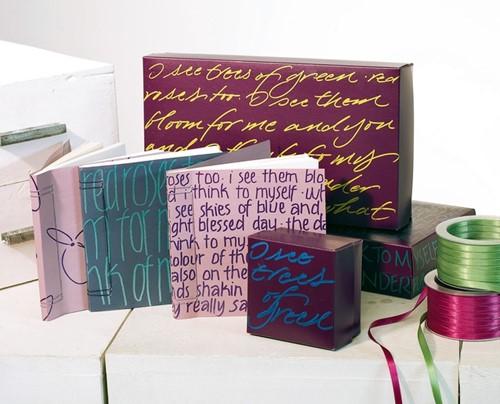 I see trees of green · red
roses too. I see them
bloom for me and you
to my
what
red roses
m for m
nk of m
roses too. i see them blo
think to myself · w
see skies of blue and
ght blessed day. the da
ink to my
colour of th
also on the
ds shakin
y really sa
I see
trees
of green
K TO MYSELF
NDER